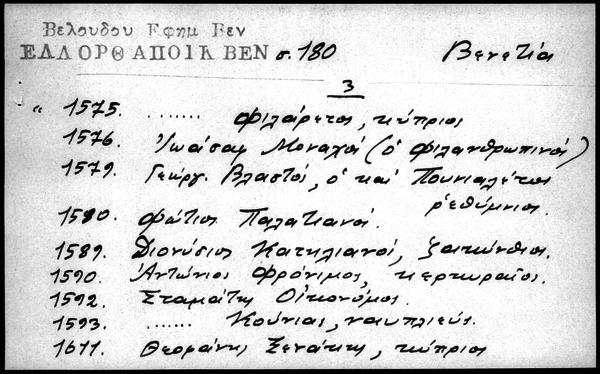 Βελουδου Εφημ Βεν
ΕΛΛΟΡΘ ΑΠΟΙΚ ΒΕΝ σ. 180 Βενετία
3
" 1575. ....... Φιλάρετος, κύπριος
1576. Ἰωάσαφ Μοναχός (ὁ φιλανθρωπινός)
1579. Γεώργ. Βλαστός, ὁ καί Πουνιαλέτος
ρεθύμνιος.
1580. Φώτιος Παλατιανός.
1589. Διονύσιος Κατηλιανός, ζακύνθιος.
1590. Ἀντώνιος Φρόνιμος, κερκυραῖος.
1592. Σταμάτης Οἰκονόμος.
1593. ....... Κούνιας, ναυπλιεύς.
1611. Θεοφάνης Ξενάκης, κύπριος